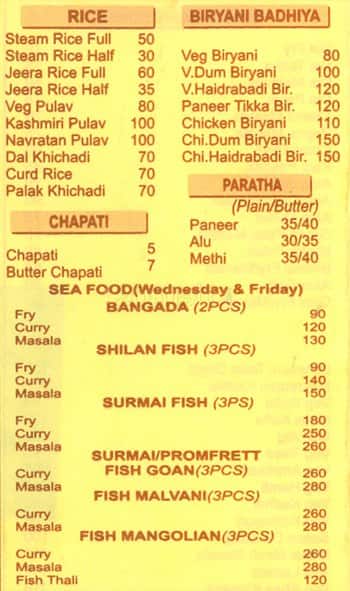 RICE
Steam Rice Full 50
Steam Rice Half 30
Jeera Rice Full 60
Jeera Rice Half 35
Veg Pulav 80
Kashmiri Pulav 100
Navratan Pulav 100
Dal Khichadi 70
Curd Rice 70
Palak Khichadi 70
CHAPATI
Chapati 5
Butter Chapati 7
BIRYANI BADHIYA
Veg Biryani 80
V.Dum Biryani 100
V.Haidrabadi Bir. 120
Paneer Tikka Bir. 120
Chicken Biryani 110
Chi.Dum Biryani 150
Chi.Haidrabadi Bir. 150
PARATHA
(Plain/Butter)
Paneer 35/40
Alu 30/35
Methi 35/40
SEA FOOD(Wednesday & Friday)
BANGADA (2PCS)
Fry 90
Curry 120
Masala 130
SHILAN FISH (3PCS)
Fry 90
Curry 140
Masala 150
SURMAI FISH (3PS)
Fry 180
Curry 250
Masala 260
SURMAI/PROMFRETT
FISH GOAN(3PCS)
Curry 260
Masala 280
FISH MALVANI(3PCS)
Curry 260
Masala 280
FISH MANGOLIAN(3PCS)
Curry 260
Masala 280
Fish Thali 120